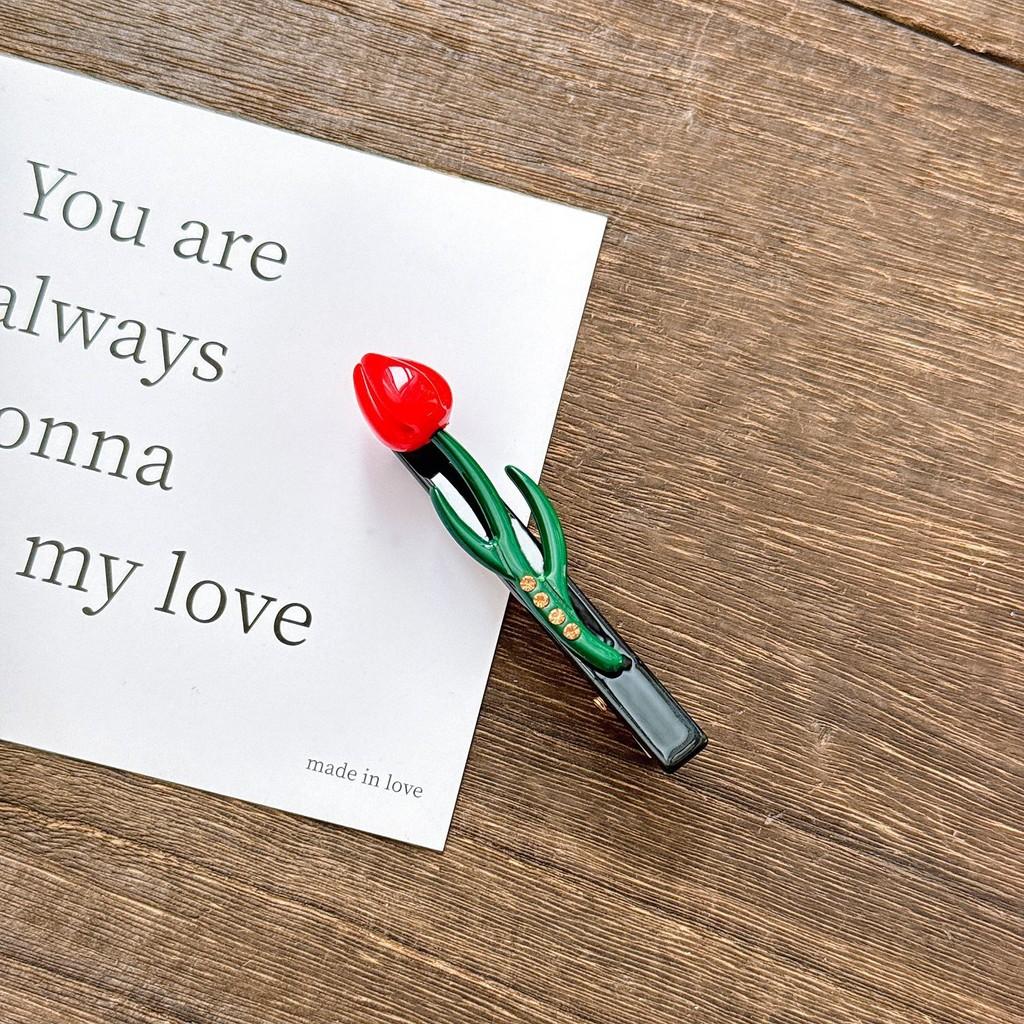 You are
always
onna
my love
made in love